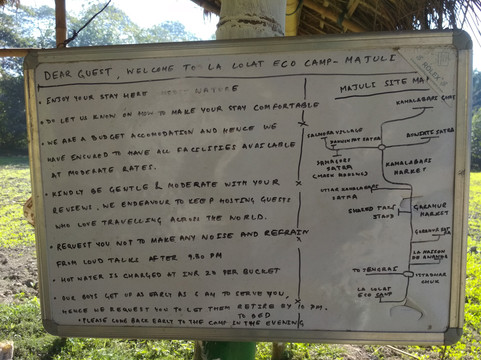 DEAR GUEST, WELCOME TO LA LOLAT ECO CAMP - MAJULI
• ENJOY YOUR STAY HERE NATURE
• DO LET US KNOW ON HOW TO MAKE YOUR STAY COMFORTABLE
• WE ARE A BUDGET ACCOMODATION AND HENCE WE
HAVE ENSURED TO HAVE ALL FACILITIES AVAILABLE
AT MODERATE RATES.
• KINDLY BE GENTLE & MODERATE WITH YOUR
REVIEWS. WE ENDEAVOUR TO KEEP HOSTING GUESTS
WHO LOVE TRAVELLING ACROSS THE WORLD.
• REQUEST YOU NOT TO MAKE ANY NOISE AND REFRAIN
FROM LOUD TALKS AFTER 9.30 PM
• HOT WATER IS CHARGED AT INR 20 PER BUCKET
• OUR BOYS GET UP AS EARLY AS 5 AM TO SERVE YOU,
HENCE WE REQUEST YOU TO LET THEM RETIRE BY 10 PM.
TO BED
• PLEASE COME BACK EARLY TO THE CAMP IN THE EVENING
MAJULI SITE MAP
KAMALABARI GHAT
SALMORA VILLAGE
SATRA
SAMAGURI
SATRA
(MASK MAKING)
KAMALABARI
MARKET
UTTAR KAMALABARI
SATRA
SHARED TAXI
STAND
GARAMUR
MARKET
GARAMUR
LA MAISON
DE ANANDA
TO JENGRAI
CHUK
LA LOLAT
ECO CAMP